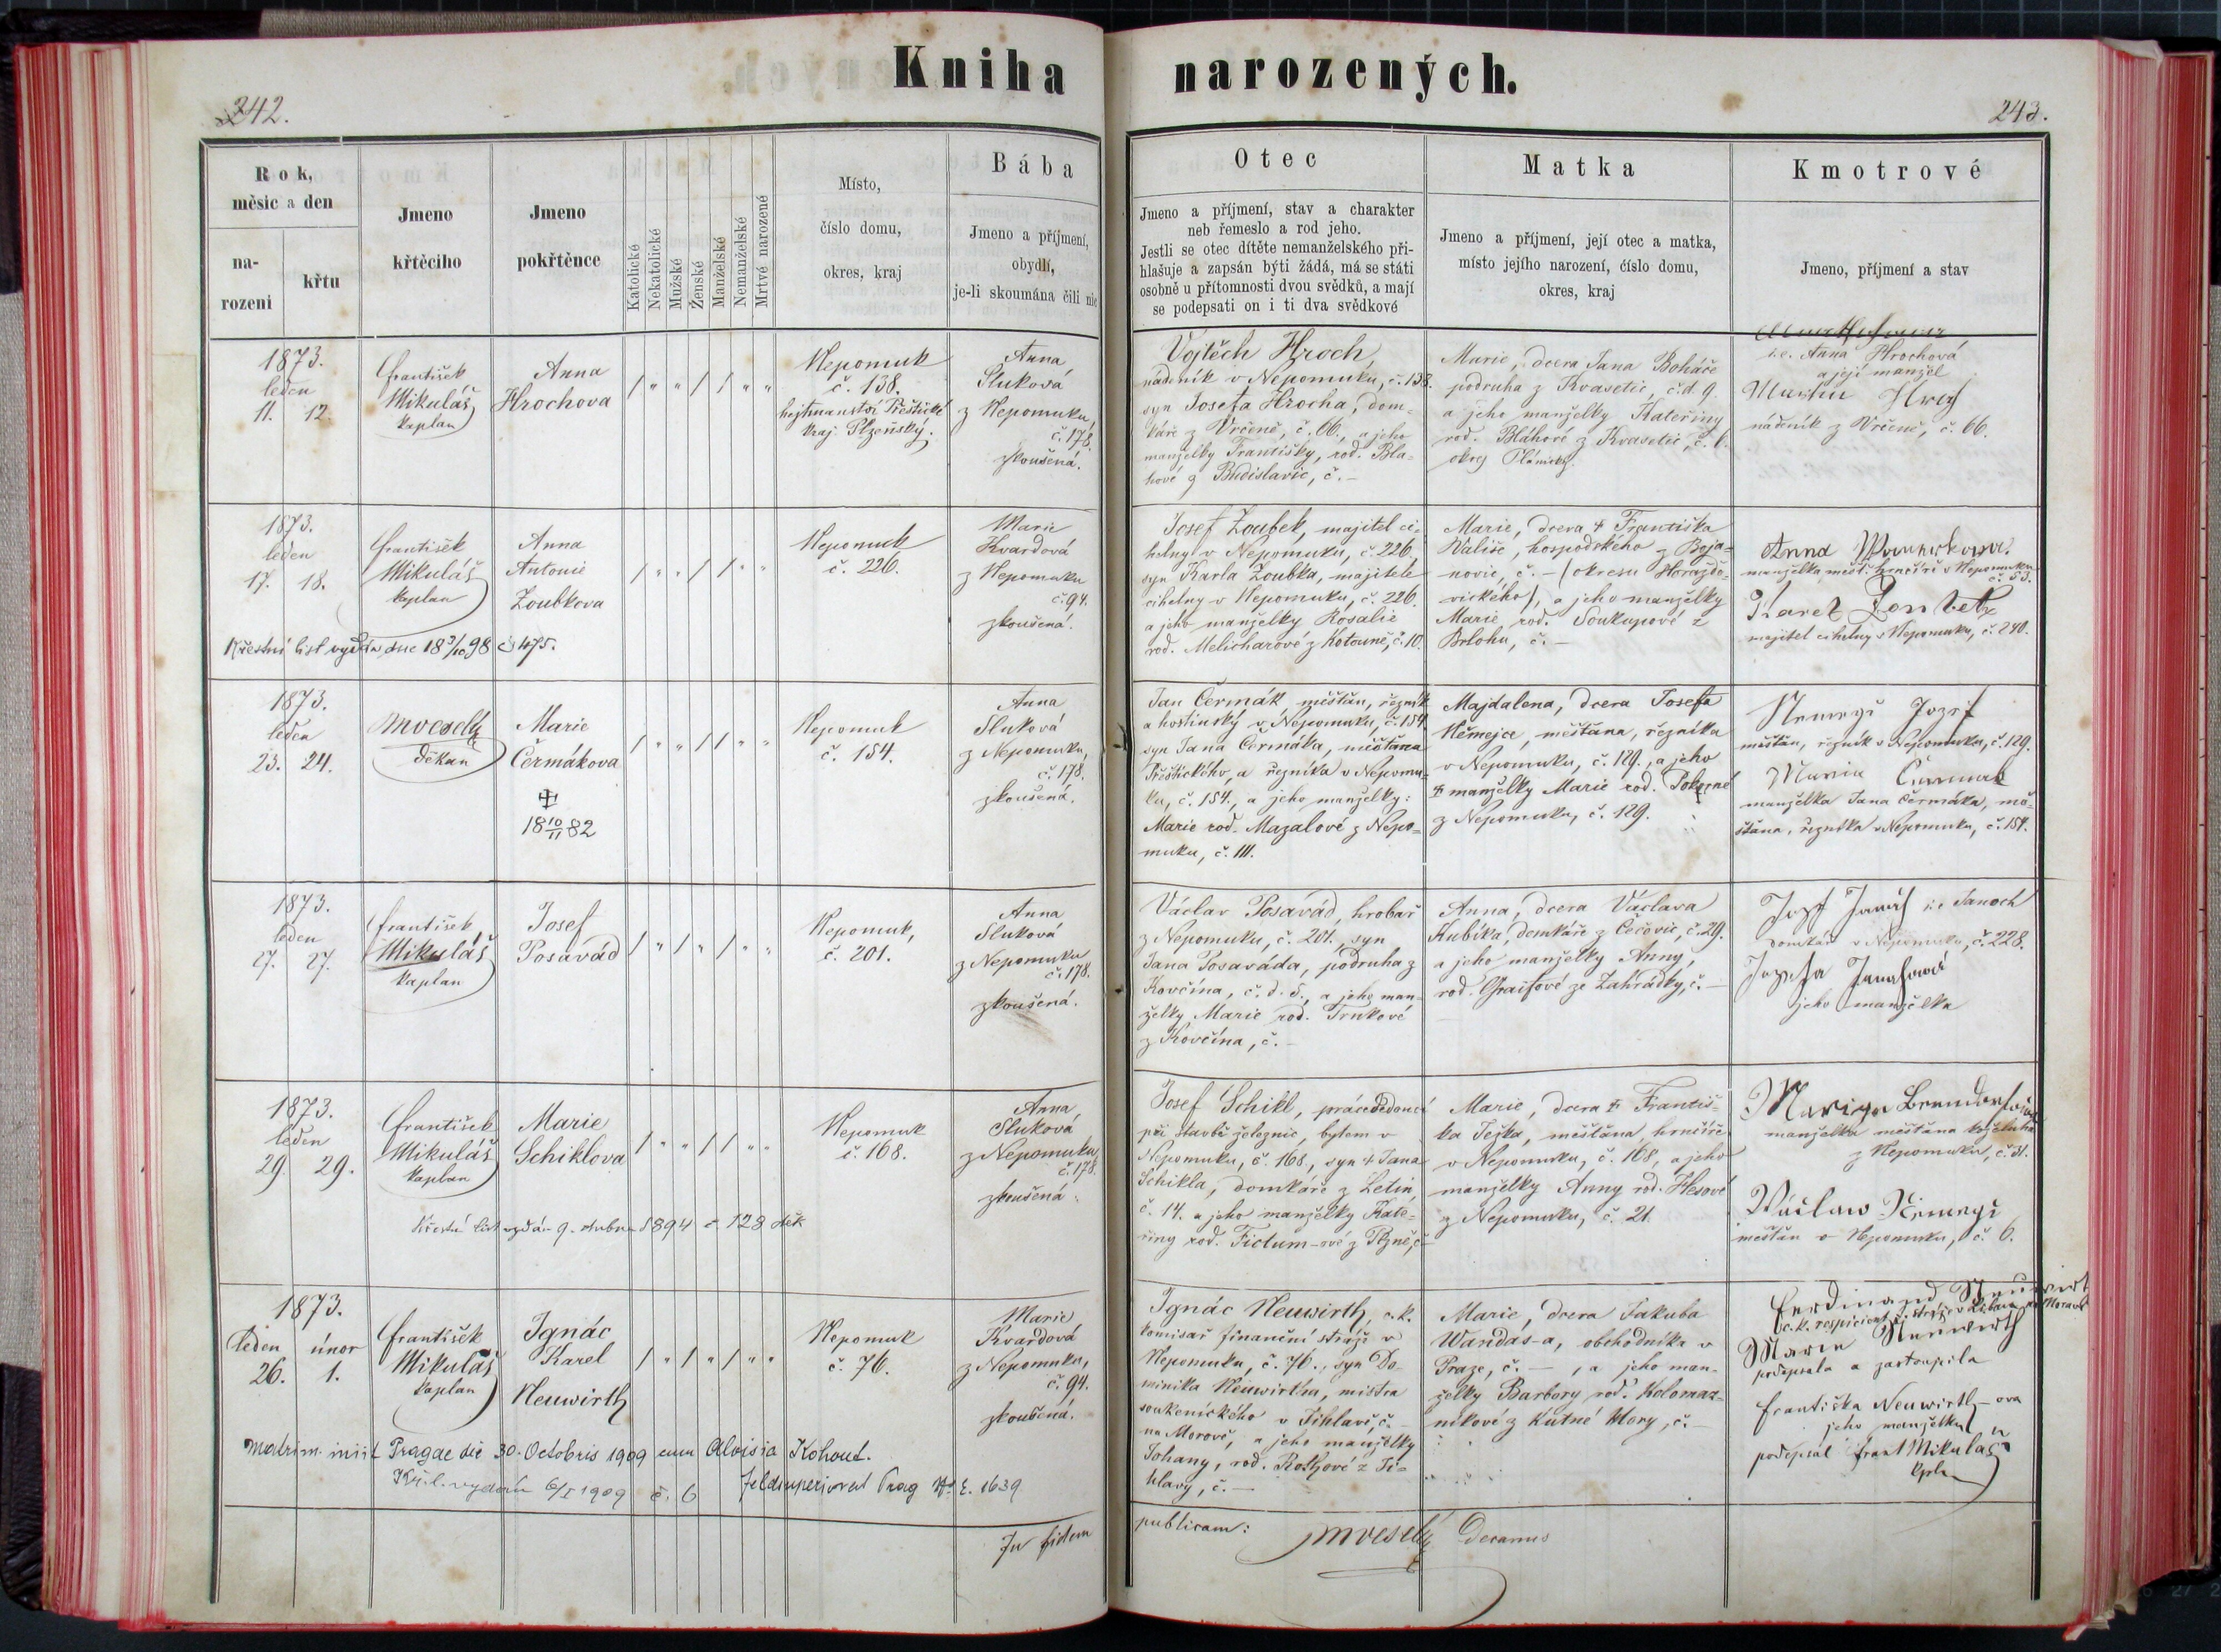 Kniha narozených.
242.
243.
Rok,
měsic a den
na-
rozeni
křtu
Jmeno
křtěciho
Jmeno
pokřtěnce
Katolické
Nekatolické
Mužské
Ženské
Manželské
Nemanželské
Mrtvé narozené
Místo,
číslo domu,
okres, kraj
Bába
Jmeno a příjmení,
obydlí,
je-li skoumána čili nic
Otec
Jmeno a příjmení, stav a charakter
neb řemeslo a rod jeho.
Jestli se otec dítěte nemanželského při-
hlašuje a zapsán býti žádá, má se státi
osobně u přítomnosti dvou svědků, a mají
se podepsati on i ti dva svědkové
Matka
Jmeno a příjmení, její otec a matka,
místo jejího narození, číslo domu,
okres, kraj
Kmotrové
Jmeno, příjmení a stav
1873.
leden
11. 12.
František
Mikuláš
kaplan
Anna
Hrochova
/ " " / / " "
Nepomuk
č. 138.
hejtmanství Přeštické
kraj Plzeňský.
Anna
Sluková
z Nepomuku,
č. 178.
zkoušená.
Vojtěch Hroch,
nádeník v Nepomuku, č. 138.
syn Josefa Hrocha, dom-
káře z Vrčeně, č. 66., a jeho
manželky Františky, rod. Bla-
hové z Budislavic, č. –
Marie, dcera Jana Boháče
podruha z Kvasetic, č.d. 9.
a jeho manželky Kateřiny
rod. Bláhové z Kvasetic, č. 6.
okres Plánický.
i.e. Anna Hrochová
a její manžel
Martin Hroch
nádeník z Vrčeně, č. 66.
1873.
leden
17. 18.
František
Mikuláš
kaplan
Anna
Antonie
Zoubkova
/ " " / / " "
Nepomuk
č. 226.
Marie
Kvardová
z Nepomuku
č. 94.
zkoušená.
Křestní list vydán dne 18 3/10 98 č 475.
Josef Zoubek, majitel ci-
helny v Nepomuku, č. 226.,
syn Karla Zoubka, majitele
cihelny v Nepomuku, č. 226.
a jeho manželky Rosalie
rod. Melicharové z Kotouně, č. 10.
Marie, dcera † Františka
Vališe, hospodského z Boja-
novic, č. – (okresu Horažďo-
vického), a jeho manželky
Marie rod. Soukupové z
Brlohu, č. –
Anna
manželka měšť. hrnčíře v Nepomuku
č. 53.
Karel Zoubek
majitel cihelny v Nepomuku, č. 240.
1873.
leden
23. 24.
JMVeselý
děkan
Marie
Čermákova
/ " " / / " "
Nepomuk
č. 154.
Anna
Sluková
z Nepomuku,
č. 178.
zkoušená.
18 10/11 82
Jan Čermák, měšťan, řezník
a hostinský v Nepomuku, č. 154.
syn Jana Čermáka, měšťana
Přeštického, a řezníka v Nepomu-
ku, č. 154., a jeho manželky:
Marie rod. Mazalové z Nepo-
muku, č. 111.
Majdalena, dcera Josefa
Němejce, měšťana, řezníka
v Nepomuku, č. 129., a jeho
† manželky Marie rod. Pokorné
z Nepomuku, č. 129.
měšťan, řezník v Nepomuku, č. 129.
Maria Čermak
manželka Jana Čermáka, mě-
šťana, řezníka v Nepomuku, č. 154.
1873.
leden
27. 27.
František
Mikuláš
kaplan
Josef
Posavád
/ " / " / " "
Nepomuk,
č. 201.
Anna
Sluková
z Nepomuku
č. 178.
zkoušená.
Václav Posavád, hrobař
z Nepomuku, č. 201., syn
Jana Posaváda, podruha z
Kovčína, č. d. 5., a jeho man-
želky Marie rod. Trnkové
z Kovčína, č. –
Anna, dcera Václava
Kubíka, domkáře z Čečovic, č. 29.
a jeho manželky Anny,
rod. Graifové ze Zahrádky, č. –
i.e Janoch
domkář v Nepomuku, č. 228.
jeho manželka
1873.
leden
29. 29.
František
Mikuláš
kaplan
Marie
Schiklova
/ " " / / " "
Nepomuk
č. 168.
Anna
Sluková
z Nepomuku,
č. 178.
zkoušená.
Křestní list vydán 9. dubna 1894 č 128
Josef Schikl, prácevedoucí
při stavbě železnic, bytem v
Nepomuku, č. 168., syn † Jana
Schikla, domkáře z Letin,
č. 14. a jeho manželky Kate-
řiny rod. Fictum-ové z Plzně, č –
Marie, dcera † Františ-
ka Ježka, měšťana, hrnčíře
v Nepomuku, č. 168, a jeho
manželky Anny rod. Hesové
z Nepomuku, č. 21.
manželka měšťana koželuha
z Nepomuku, č. 31.
Václaw
měšťan v Nepomuku, č. 6.
1873.
leden únor
26. 1.
František
Mikuláš
kaplan
Ignác
Karel
Neuwirth
/ " / " / " "
Nepomuk
č. 76.
Marie
Kvardová
z Nepomuku,
č. 94.
zkoušená.
Matrim. iniit Pragae die 30. Octobris 1909 cum Aloisia Kohout.
Kř. l. vydán 6/I 1909 č. 6 Feldsuperiorat Prag No E. 1639
Ignác Neuwirth, c.k.
komisař finanční stráže v
Nepomuku, č. 76., syn Do-
minika Neuwirtha, mistra
soukenického v Jihlavě, č. –
na Moravě, a jeho manželky
Johany, rod. Rothové z Ji-
hlavy, č. –
Marie, dcera Jakuba
Wandas-a, obchodníka v
Praze, č. –, a jeho man-
želky Barbory rod. Kolomaz-
níkové z Kutné Hory, č. –
Ferdinand Neuwirth
Marie Neuwirth
podepsala a zastoupila
Františka Neuwirth-ova
jeho manželka
podepsal Frant Mikuláš
kpln
In fidem
publicam: JMVeselý Decanus